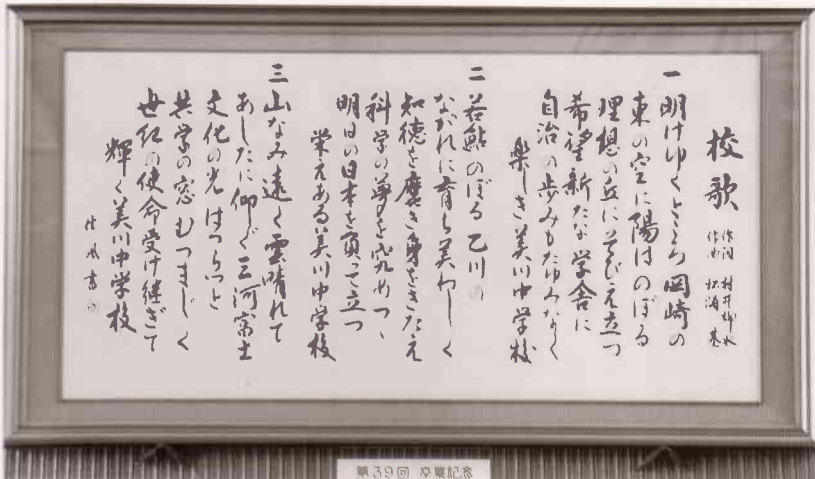 校歌
作詞 村井
作曲
一 明けゆくところ岡崎の
東の空に陽はのぼる
理想の丘にそびえ立つ
希望新たな学舎に
自治の歩みもたゆみなく
楽しき美川中学校
二 若鮎のぼる乙川の
ながれに育ち美わしく
知徳を磨き身をきたえ
科学の夢を究めつゝ
明日の日本を負って立つ
栄えある美川中学校
三 山なみ遠く雲晴れて
あしたに仰ぐ三河富士
文化の光はつらつと
共学の窓むつまじく
世紀の使命受け継ぎて
輝く美川中学校
第39回 卒業記念